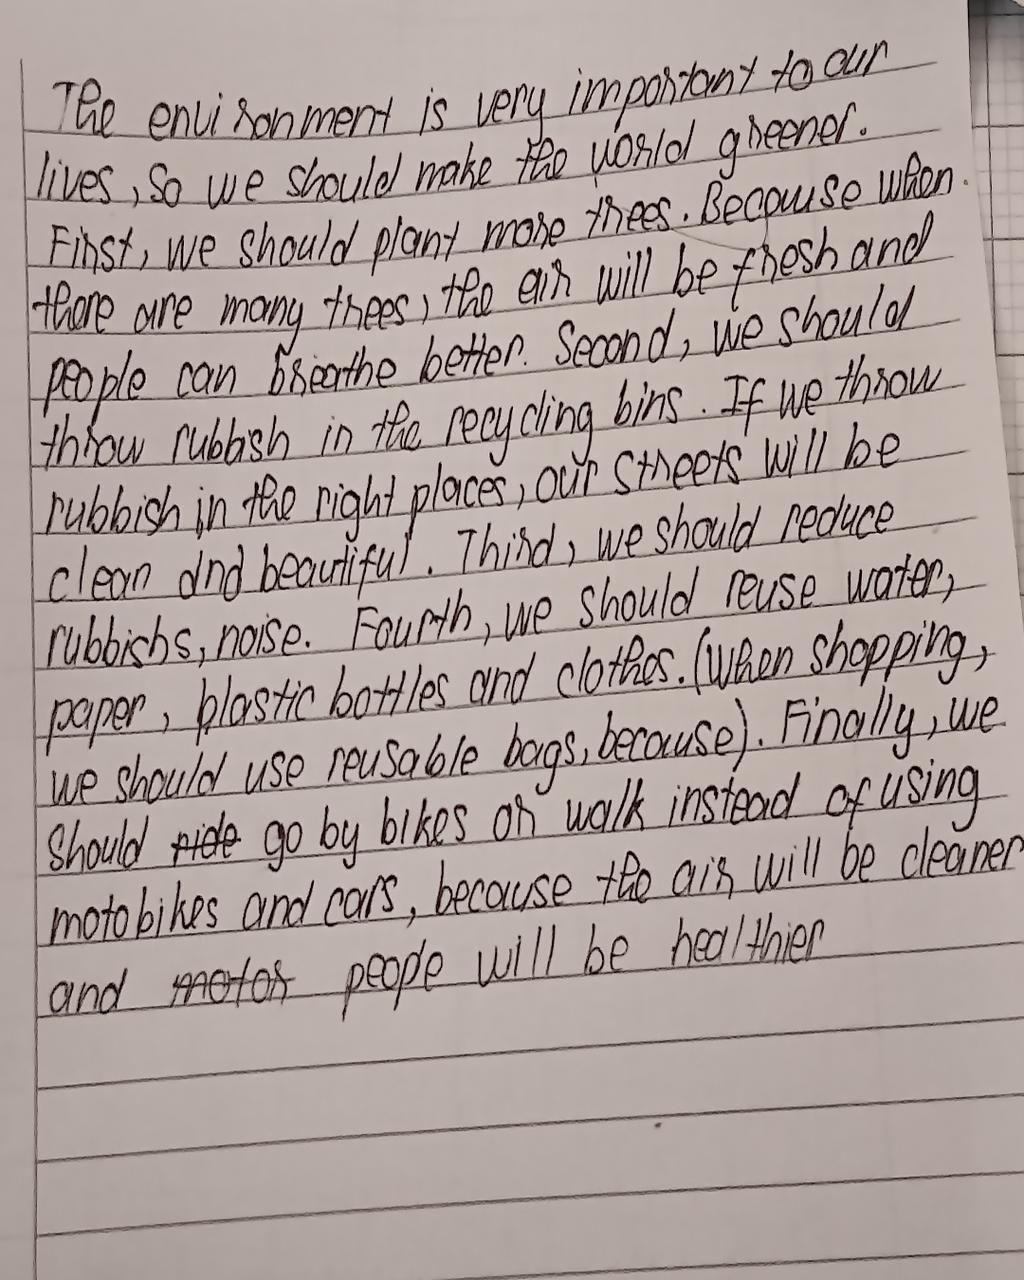 The environment is very important to our
lives, so we should make the world greener.
First, we should plant more trees. Because when
there are many trees, the air will be fresh and
people can breathe better. Second, we should
throw rubbish in the recycling bins. If we throw
rubbish in the right places, our streets will be
clean and beautiful. Third, we should reduce
rubbishs, noise. Fourth, we should reuse water,
paper, plastic bottles and clothes. (When shopping,
we should use reusable bags, because). Finally, we
should ride go by bikes or walk instead of using
motobikes and cars, because the air will be cleaner
and motor people will be healthier